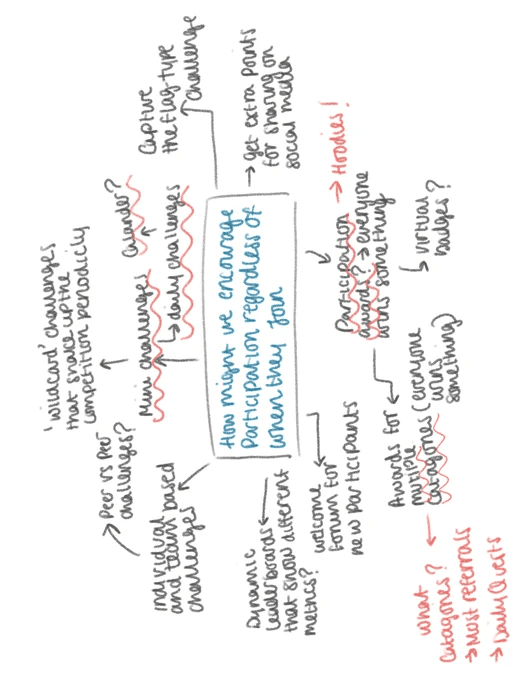 How might we encourage
Participation regardless of
when they Join
Individual
and team based
challenges
Peer vs Peer
challenges?
'wildcard' challenges
that shake up the
competition periodicly
Mini challenges
→ daily challenges
Capture
the flag type
challenge
→ get extra points
for sharing on
social media
Participation
award? → everyone
wins something
→ Hoodies!
virtual
badges?
Awards for
multiple
catagories (everyone
wins
something)
what
catagories?
→ Most referrals
→ Daily
welcome
forum for
new participants
Dynamic
leaderboards
that show different
metrics?